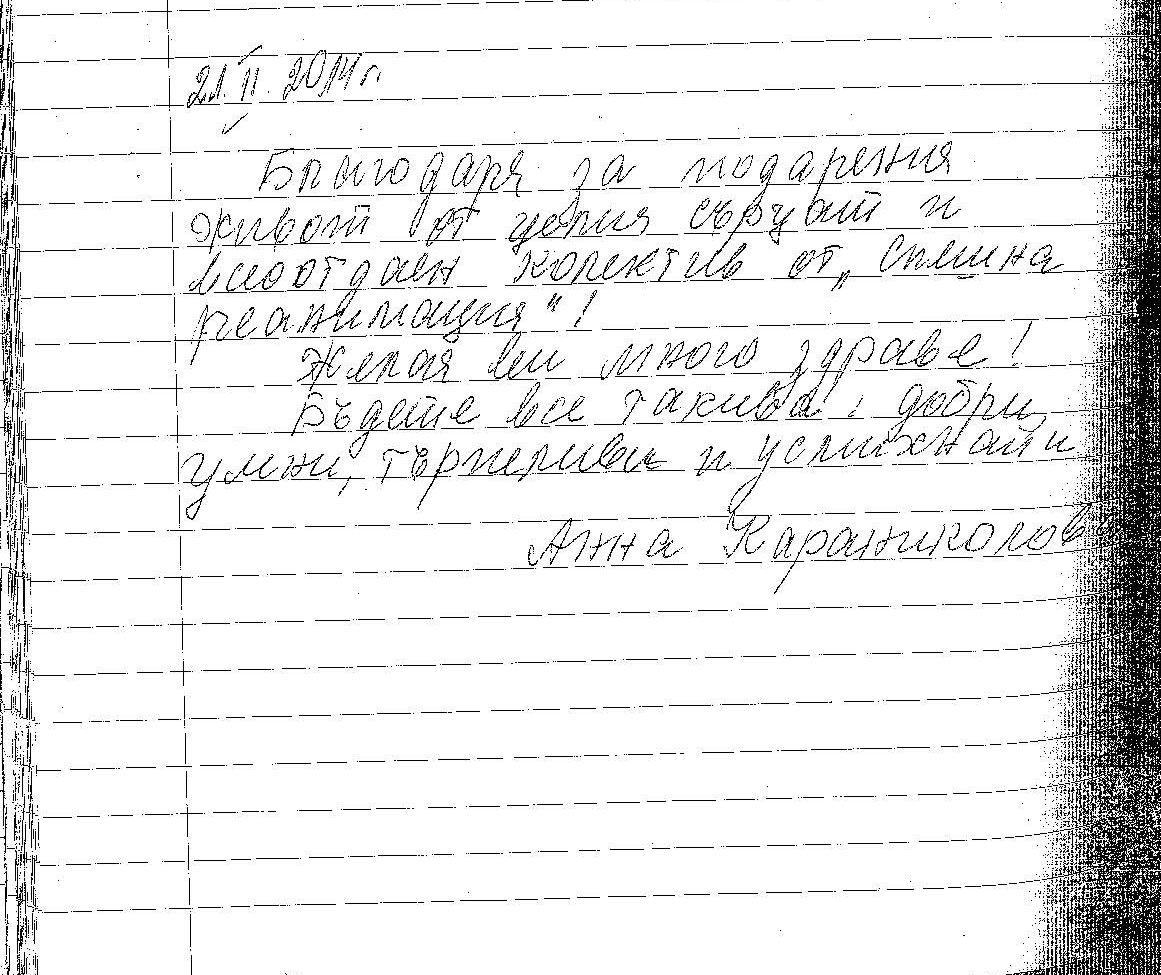 21.II.2014г.
Благодаря за подарения
живот от целия сърцат и
всеотдаен колектив от „Спешна
реанимация"!
Желая ви много здраве!
Бъдете все такива: добри,
умни, търпеливи и усмихнати
Анна Караниколова